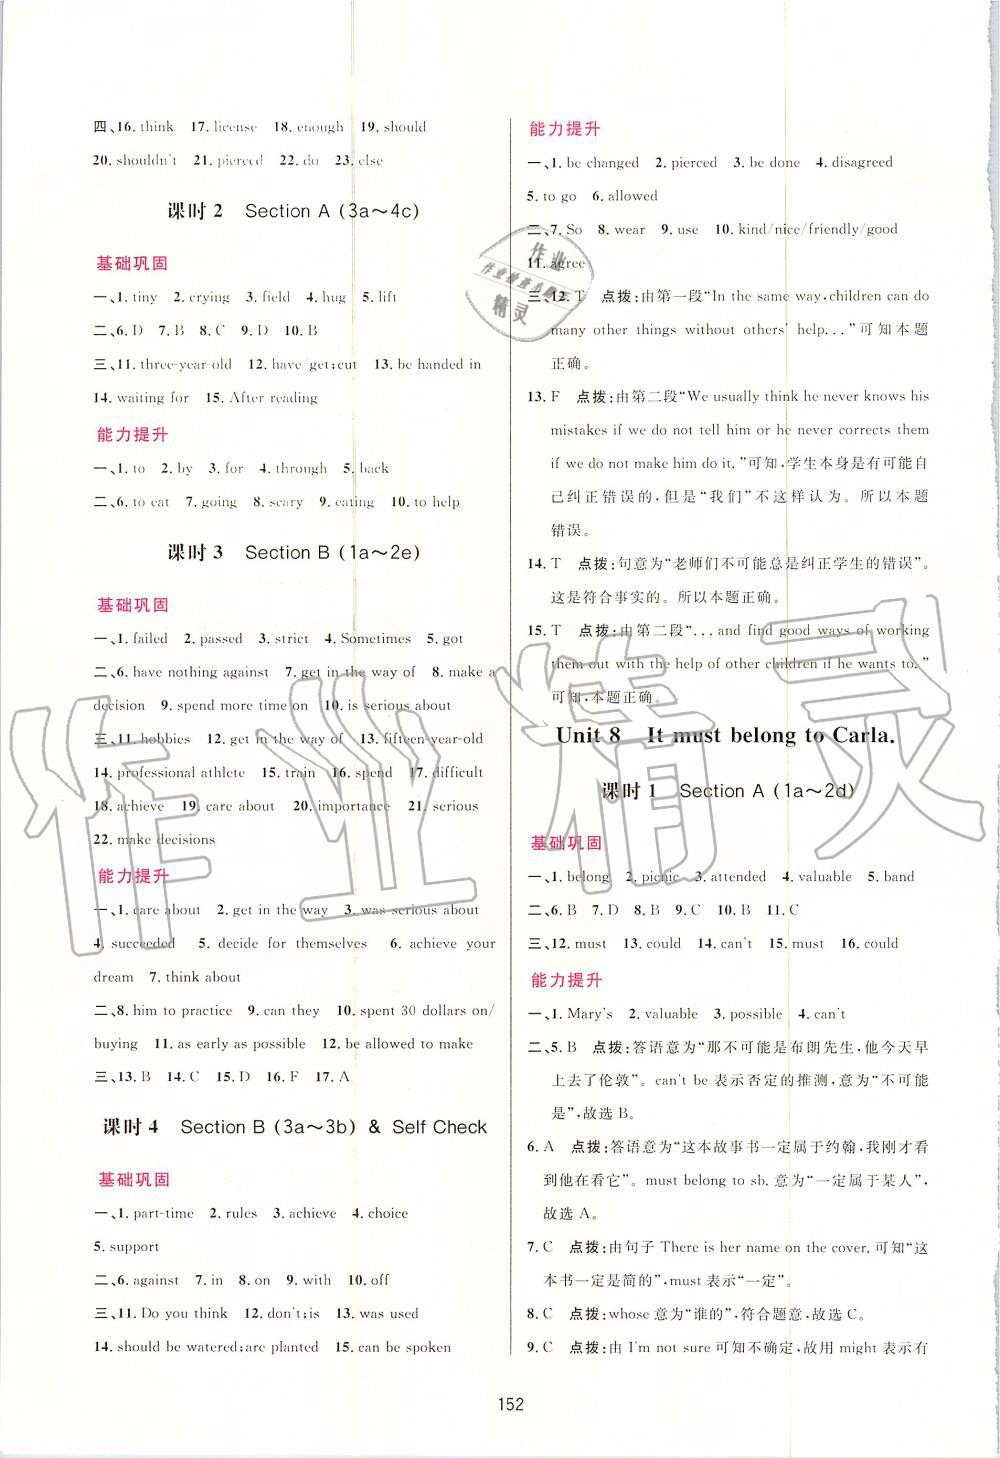 四、16. think　17. license　18. enough　19. should
20. shouldn't　21. pierced　22. do　23. else
课时2　Section A (3a～4c)
基础巩固
一、1. tiny　2. crying　3. field　4. hug　5. lift
二、6. D　7. B　8. C　9. D　10. B
三、11. three-year-old　12. have/get;cut　13. be handed in
14. waiting for　15. After reading
能力提升
一、1. to　2. by　3. for　4. through　5. back
二、6. to eat　7. going　8. scary　9. eating　10. to help
课时3　Section B (1a～2e)
基础巩固
一、1. failed　2. passed　3. strict　4. Sometimes　5. got
二、6. have nothing against　7. get in the way of　8. make a
decision　9. spend more time on　10. is serious about
三、11. hobbies　12. get in the way of　13. fifteen-year-old
14. professional athlete　15. train　16. spend　17. difficult
18. achieve　19. care about　20. importance　21. serious
22. make decisions
能力提升
一、1. care about　2. get in the way　3. was serious about
4. succeeded　5. decide for themselves　6. achieve your
dream　7. think about
二、8. him to practice　9. can they　10. spent 30 dollars on/
buying　11. as early as possible　12. be allowed to make
三、13. B　14. C　15. D　16. F　17. A
课时4　Section B (3a～3b) & Self Check
基础巩固
一、1. part-time　2. rules　3. achieve　4. choice
5. support
二、6. against　7. in　8. on　9. with　10. off
三、11. Do you think　12. don't;is　13. was used
14. should be watered;are planted　15. can be spoken
能力提升
一、1. be changed　2. pierced　3. be done　4. disagreed
5. to go　6. allowed
二、7. So　8. wear　9. use　10. kind/nice/friendly/good
11. agree
三、12. T　点拨:由第一段“In the same way,children can do
many other things without others' help...”可知本题
正确。
13. F　点拨:由第二段“We usually think he never knows his
mistakes if we do not tell him or he never corrects them
if we do not make him do it.”可知,学生本身是有可能自
己纠正错误的,但是“我们”不这样认为。所以本题
错误。
14. T　点拨:句意为“老师们不可能总是纠正学生的错误”。
这是符合事实的。所以本题正确。
15. T　点拨:由第二段“...and find good ways of working
them out with the help of other children if he wants to.”
可知,本题正确。
Unit 8　It must belong to Carla.
课时1　Section A (1a～2d)
基础巩固
一、1. belong　2. picnic　3. attended　4. valuable　5. band
二、6. B　7. D　8. B　9. C　10. B　11. C
三、12. must　13. could　14. can't　15. must　16. could
能力提升
一、1. Mary's　2. valuable　3. possible　4. can't
二、5. B　点拨:答语意为“那不可能是布朗先生,他今天早
上去了伦敦”。can't be 表示否定的推测,意为“不可能
是”,故选 B。
6. A　点拨:答语意为“这本故事书一定属于约翰,我刚才看
到他在看它”。must belong to sb. 意为“一定属于某人”,
故选 A。
7. C　点拨:由句子 There is her name on the cover. 可知“这
本书一定是简的”,must 表示“一定”。
8. C　点拨:whose 意为“谁的”,符合题意,故选 C。
9. C　点拨:由 I'm not sure 可知不确定,故用 might 表示有
152
作业
作业检查小助手
精灵
作业精灵